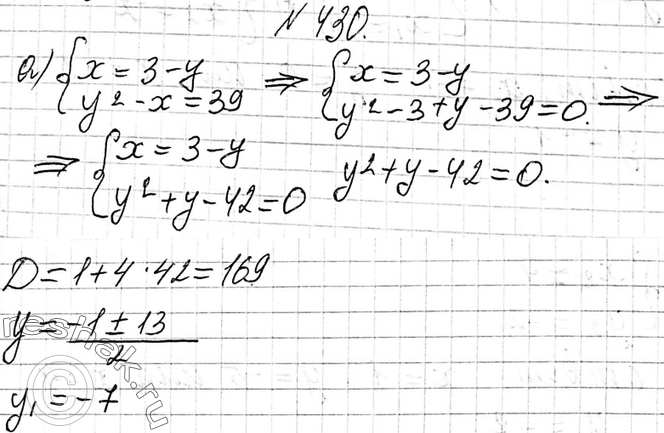 № 430.
а) { x = 3 - y ⇒ { x = 3 - y
{ y² - x = 39 { y² - 3 + y - 39 = 0. ⇒
⇒ { x = 3 - y y² + y - 42 = 0.
{ y² + y - 42 = 0
D = 1 + 4 · 42 = 169
y = (-1 ± 13) / 2
y₁ = -7
reshak.ru
©